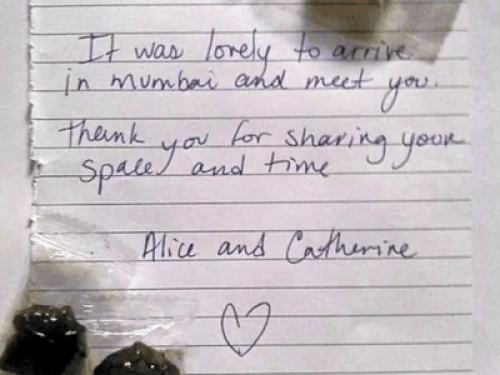 It was lovely to arrive
in mumbai and meet you.
Thank you for sharing your
space and time
Alice and Catherine